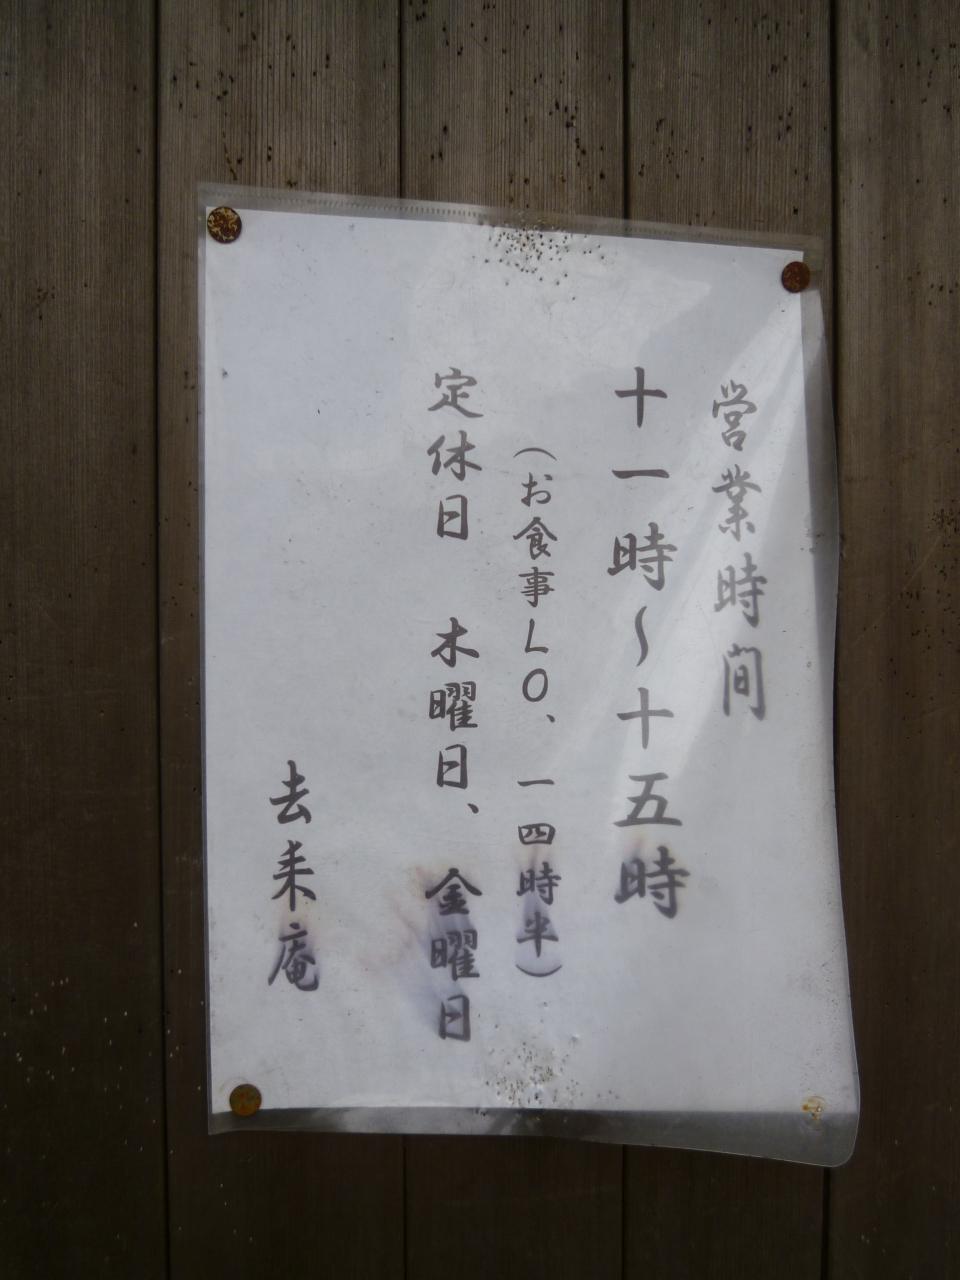 営業時間
十一時～十五時
（お食事LO、一四時半）
定休日　木曜日、金曜日
去来庵